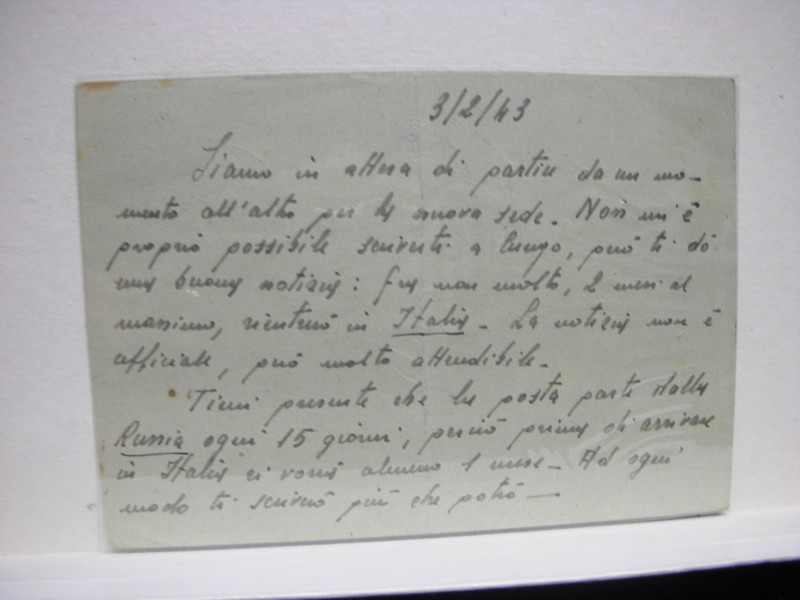 3/2/43
Siamo in attesa di partire da un mo-
mento all'altro per la nuova sede. Non mi è
proprio possibile scriverti a lungo, però ti dò
una buona notizia: fra non molto, 2 mesi al
massimo, rientrerò in Italia. La notizia non è
ufficiale, però molto attendibile.
Tieni presente che la posta parte dalla
Russia ogni 15 giorni, perciò prima di arrivare
in Italia ci vorrà almeno 1 mese. Ad ogni
modo ti scriverò più che potrò